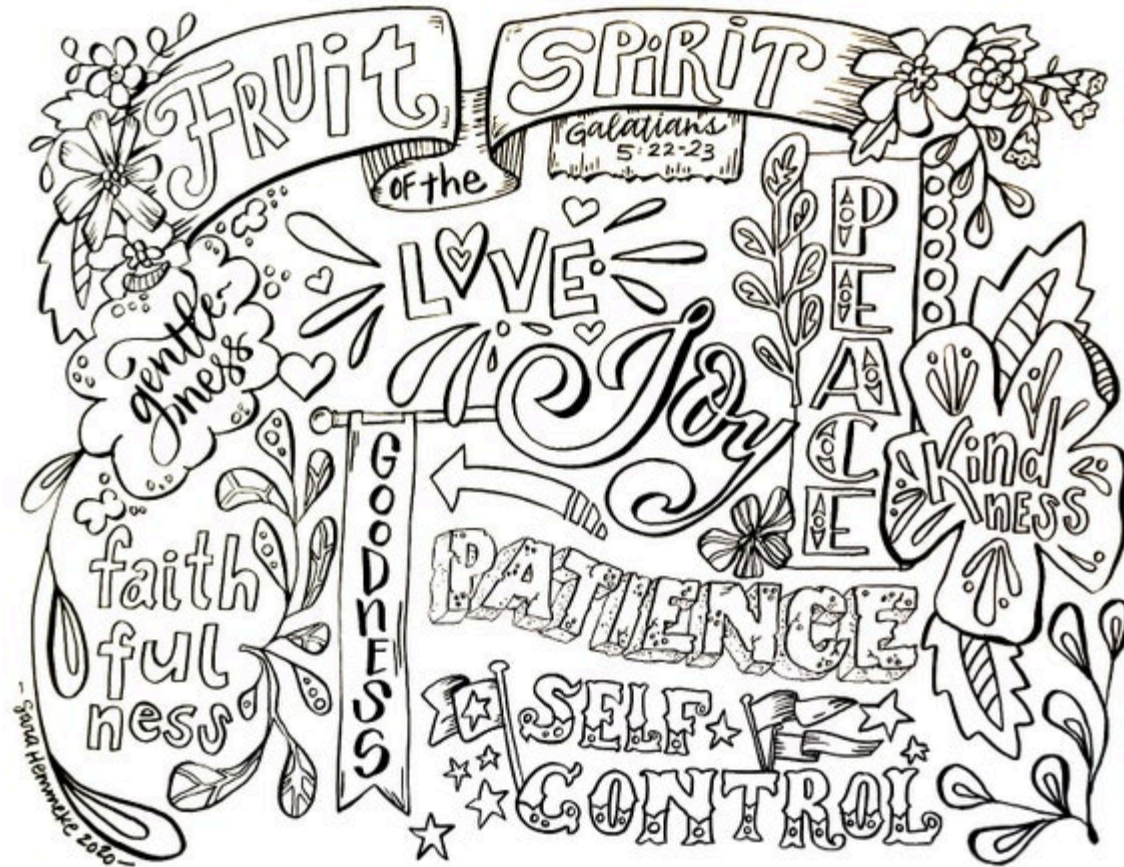 FRUIT
OF the
SPIRIT
Galatians
5:22-23
LOVE
Joy
PEACE
gentle-
ness
Kind
NESS
GOODNESS
faith
ful
ness
PATIENCE
SELF
CONTROL
- Sara Hemmeke 2020 -